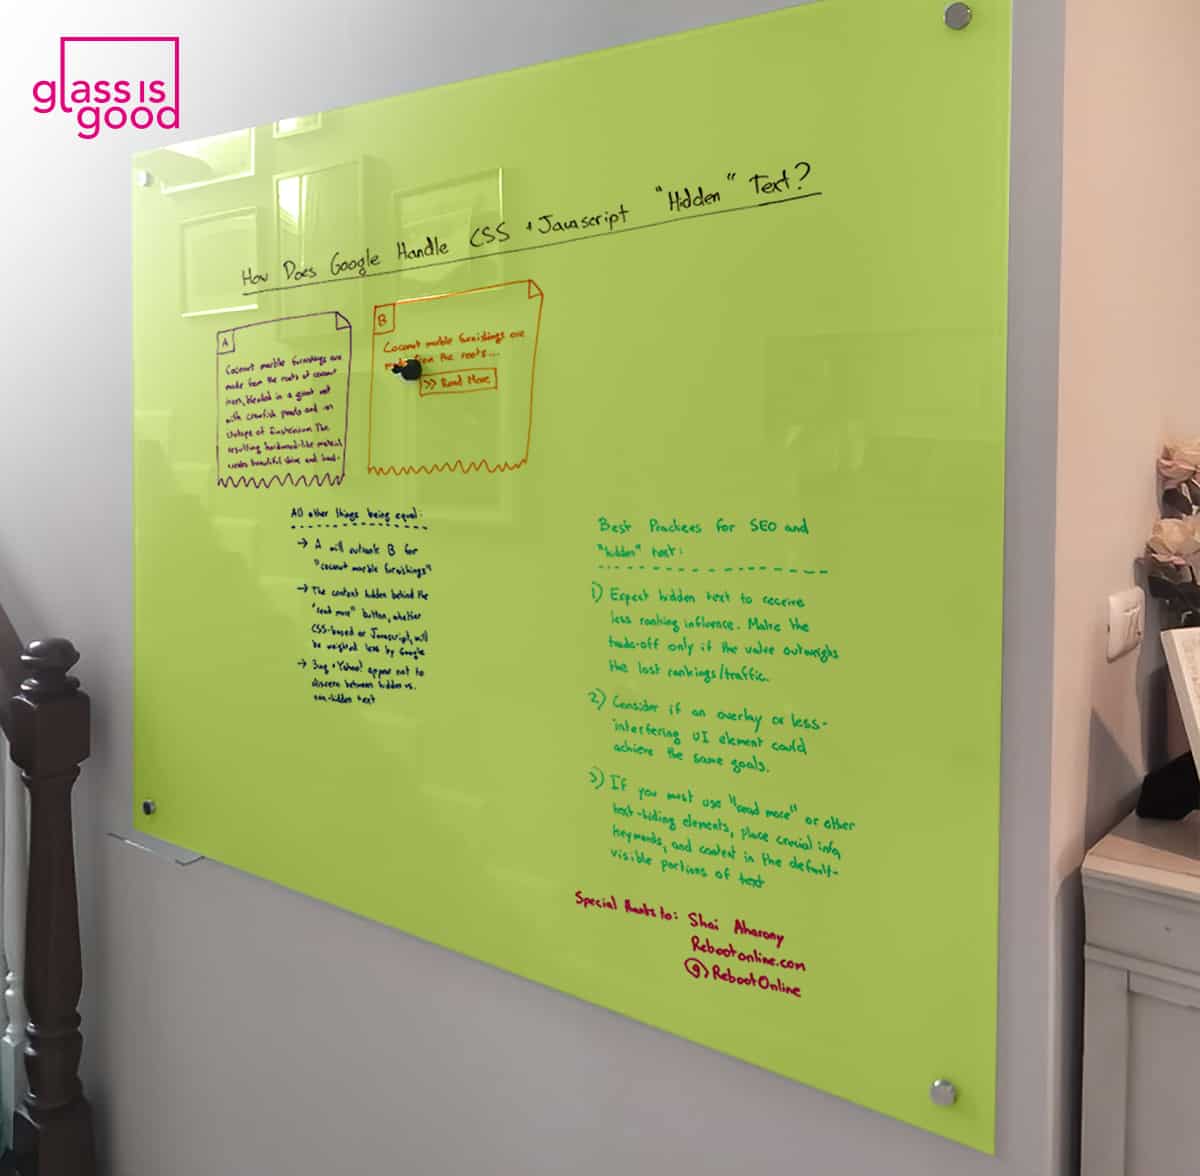 glass is
good
How Does Google Handle CSS + Javascript "Hidden" Text?
A
Coconut marble furnishings are
made from the roots of coconut
trees, blended in a giant vat
with crawfish pearls and an
isotope of Einsteinium. The
resulting hardwood-like material
creates beautiful shine and
B
Coconut marble furnishings are
made from the roots...
>> Read More
All other things being equal:
→ A will outrank B for
"coconut marble furnishings"
→ The content hidden behind the
"read more" button, whether
CSS-based or Javascript, will
be weighted less by Google
→ Bing + Yahoo! appear not to
discern between hidden vs.
non-hidden text
Best Practices for SEO and
"hidden" text:
1) Expect hidden text to receive
less ranking influence. Make the
trade-off only if the value outweighs
the lost rankings/traffic.
2) Consider if an overlay or less-
interfering UI element could
achieve the same goals.
3) If you must use "read more" or other
text-hiding elements, place crucial info,
keywords, and content in the default-
visible portions of text
Special thanks to: Shai Aharony
Rebootonline.com
@RebootOnline